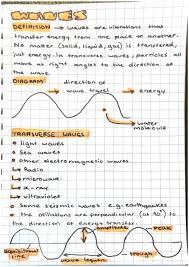 WAVES
DEFINITION → waves are vibrations that
transfer energy from one place to another.
No matter (solid, liquid, gas) is transfered,
just energy. In transverse waves, particles all
move at right angles to the direction of
the wave.
DIAGRAM
direction of
wave travel → energy
water
molecule
TRANSVERSE WAVES
light waves
Sea waves
other electromagnetic waves
↳ Radio
↳ microwave
↳ x-ray
↳ ultraviolet
Some seismic waves e.g. earthquakes
the osillations are perpendicular (at 90°) to
the direction of energy transfer.
amplitude
peak
line
wave length
trough